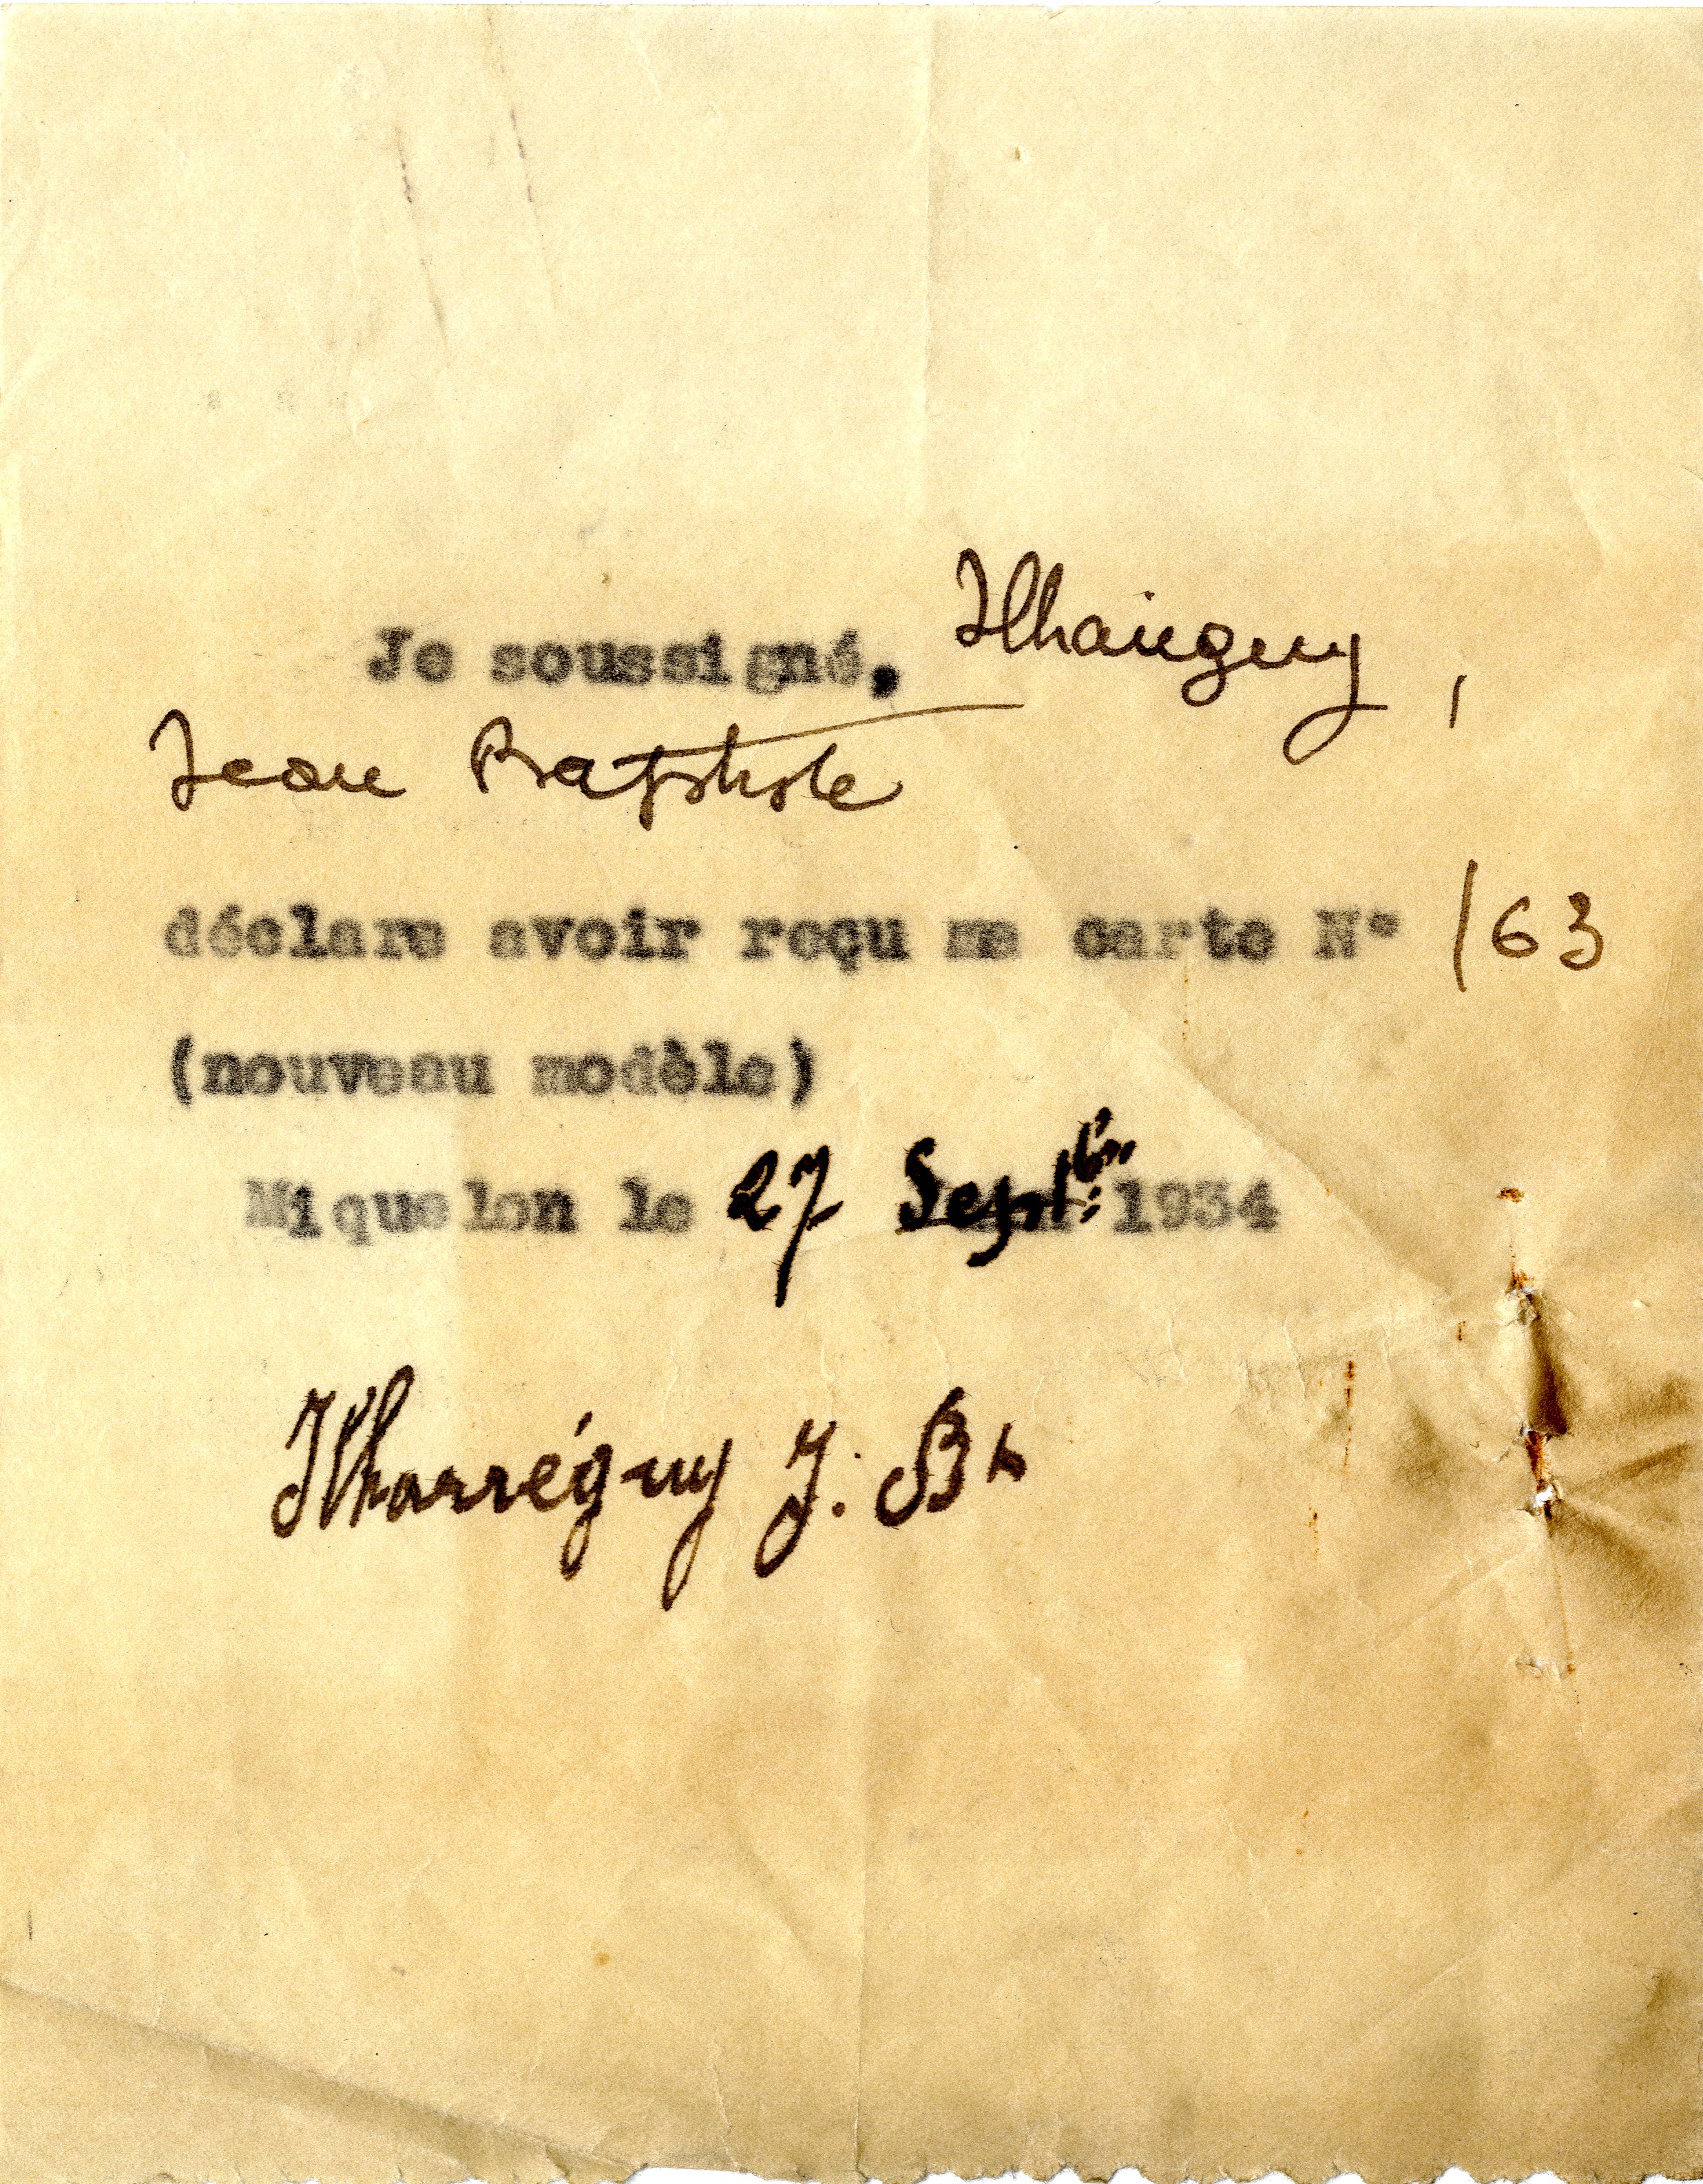 Je soussigné, Ilhaireguy,
Jean Baptiste
déclare avoir reçu ma carte N° 163
(nouveau modèle)
Miquelon le 27 Septbre 1934
Ilharréguy J. Bte